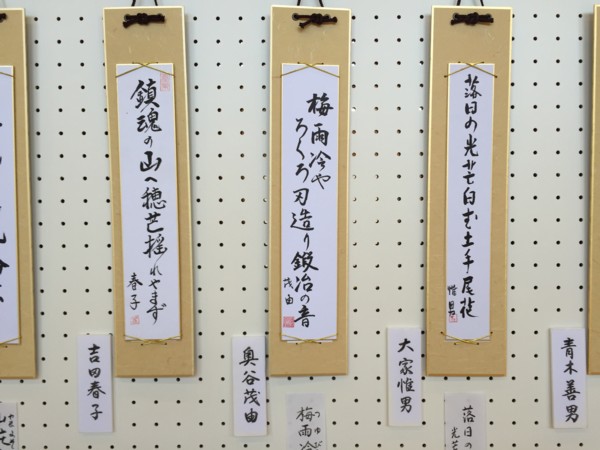 青木善男
落日の光芒白む土手尾花
惟男
大家惟男
落日の
光芒
梅雨冷や
ろくろ刃造り鍛冶の音
茂由
奥谷茂由
梅雨冷
鎮魂の山へ穂芒揺れやまず
春子
吉田春子